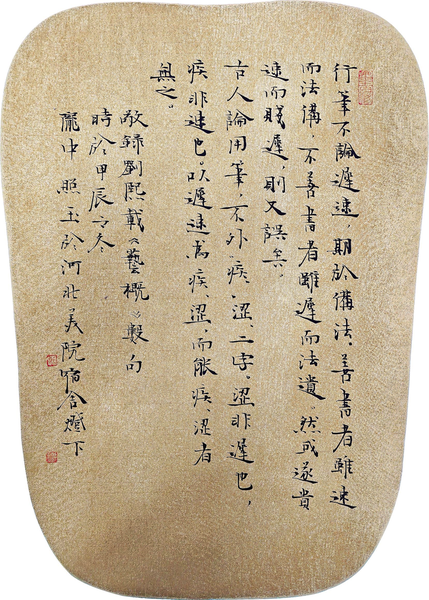 行筆不論遲速，期於備法。善書者雖速
而法備，不善書者雖遲而法遺。然或遂貴
速而賤遲，則又誤矣。
古人論用筆，不外疾、澀二字。澀非遲也，
疾非速也。以遲速為疾、澀，而能疾、澀者
無之。
敬錄劉熙載《藝概》數句
時於甲辰之冬
龐中照玉於河北美院宿舍燈下